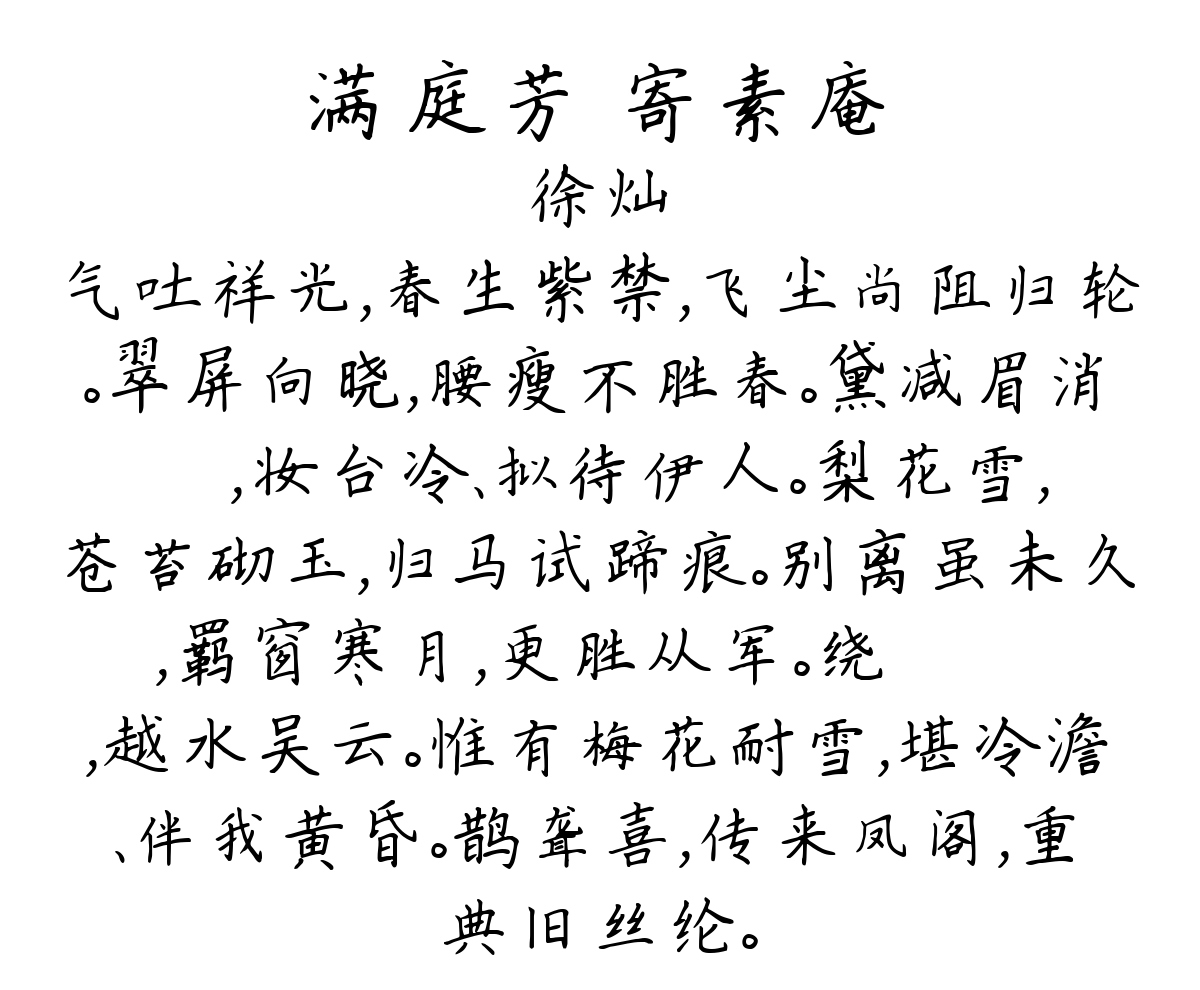 满庭芳 寄素庵
徐灿
气吐祥光,春生紫禁,飞尘尚阻归轮
。翠屏向晓,腰瘦不胜春。黛减眉消
,妆台冷、拟待伊人。梨花雪,
苍苔砌玉,归马试蹄痕。别离虽未久
,羁窗寒月,更胜从军。绕
,越水吴云。惟有梅花耐雪,堪冷澹
、伴我黄昏。鹊聋喜,传来凤阁,重
典旧丝纶。